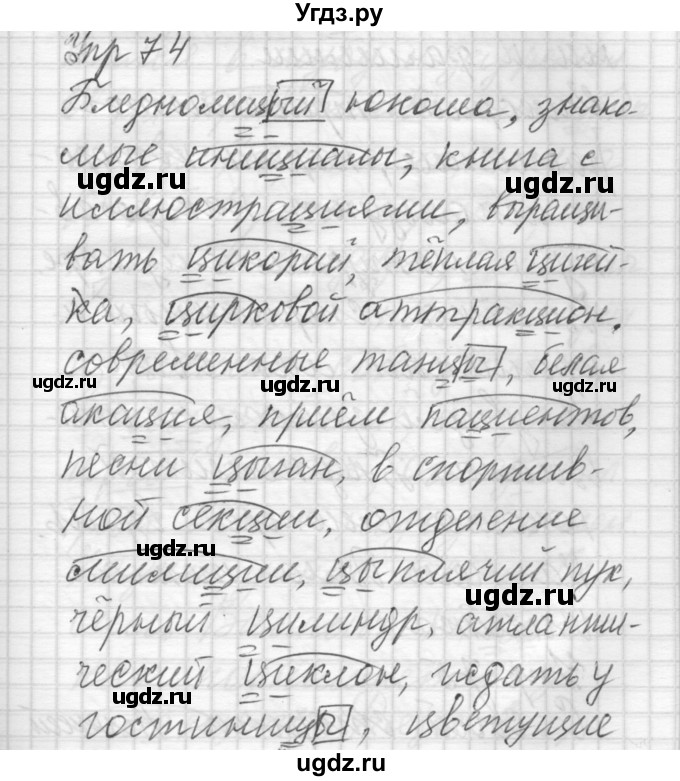 Угдз.ру
Упр 74
Бледнолицый юноша, знако-
мые инициалы, книга с
ugdz.ru
ugdz.ru
иллюстрациями, выращи-
вать цикорий, тёплая цигей-
ка, цирковой аттракцион,
современные танцы, белая
ugdz.ru
ugdz.ru
ugdz.ru
акация, приём пациентов,
песни цыган, в спортив-
ной секции, отделение
ugdz.ru
милиции, цыплячий пух,
ugdz.ru
чёрный цилиндр, атланти-
ческий циклон, ждать у
ugdz.ru
гостиницы, цветущие
ugdz.ru